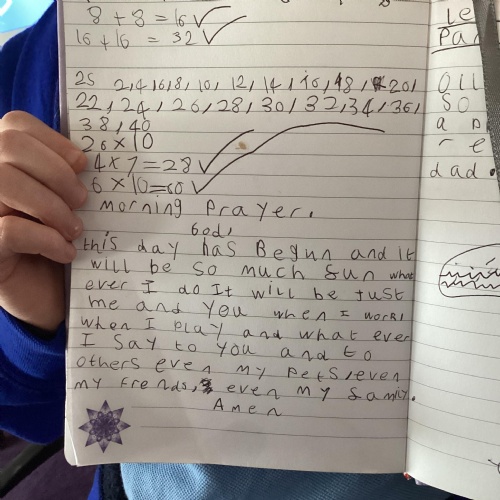 8 + 8 = 16
16 + 16 = 32
2s 2,4,6,8,10,12,14,16,18,20,
22,24,26,28,30,32,34,36,
38,40
26 x 10
4 x 7 = 28
6 x 10 = 60
morning Prayer.
God,
this day has Begun and it
will be so much fun what
ever I do It will be Just
me and you when I work,
when I Play and what ever
I say to you and to
others even my Pets, even
my frends, even my family.
Amen
le
Par
oll
so
a p
r e
dad.